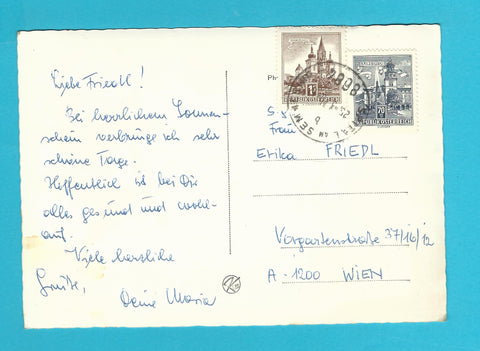 Liebe Friedl!
Bei herrlichem Sonnen-
schein verbringe ich sehr
schöne Tage.
Hoffentlich ist bei Dir
alles gesund und wohl-
auf.
Viele herzliche
Grüße,
Deine Maria
Ph
S.g.
Frau
Erika FRIEDL
Vorgartenstraße 37/16/12
A-1200 WIEN
REPUBLIK ÖSTERREICH
REPUBLIK ÖSTERREICH
AM SEM